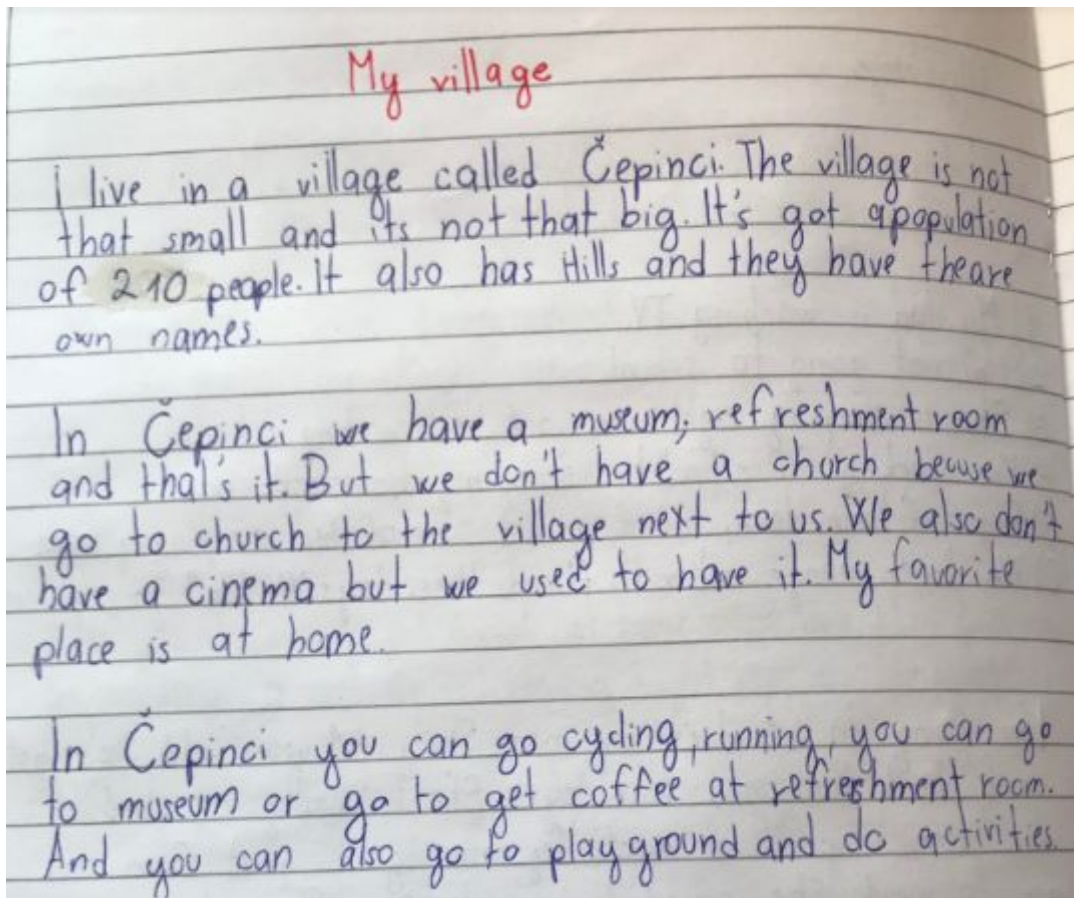 My village
I live in a village called Čepinci. The village is not
that small and its not that big. It's got a population
of 210 people. It also has Hills and they have theare
own names.
In Čepinci we have a museum, refreshment room
and that's it. But we don't have a church becuse we
go to church to the village next to us. We also don't
have a cinema but we used to have it. My favorite
place is at home.
In Čepinci you can go cycling, running, you can go
to museum or go to get coffee at refreshment room.
And you can also go to playground and do activities.